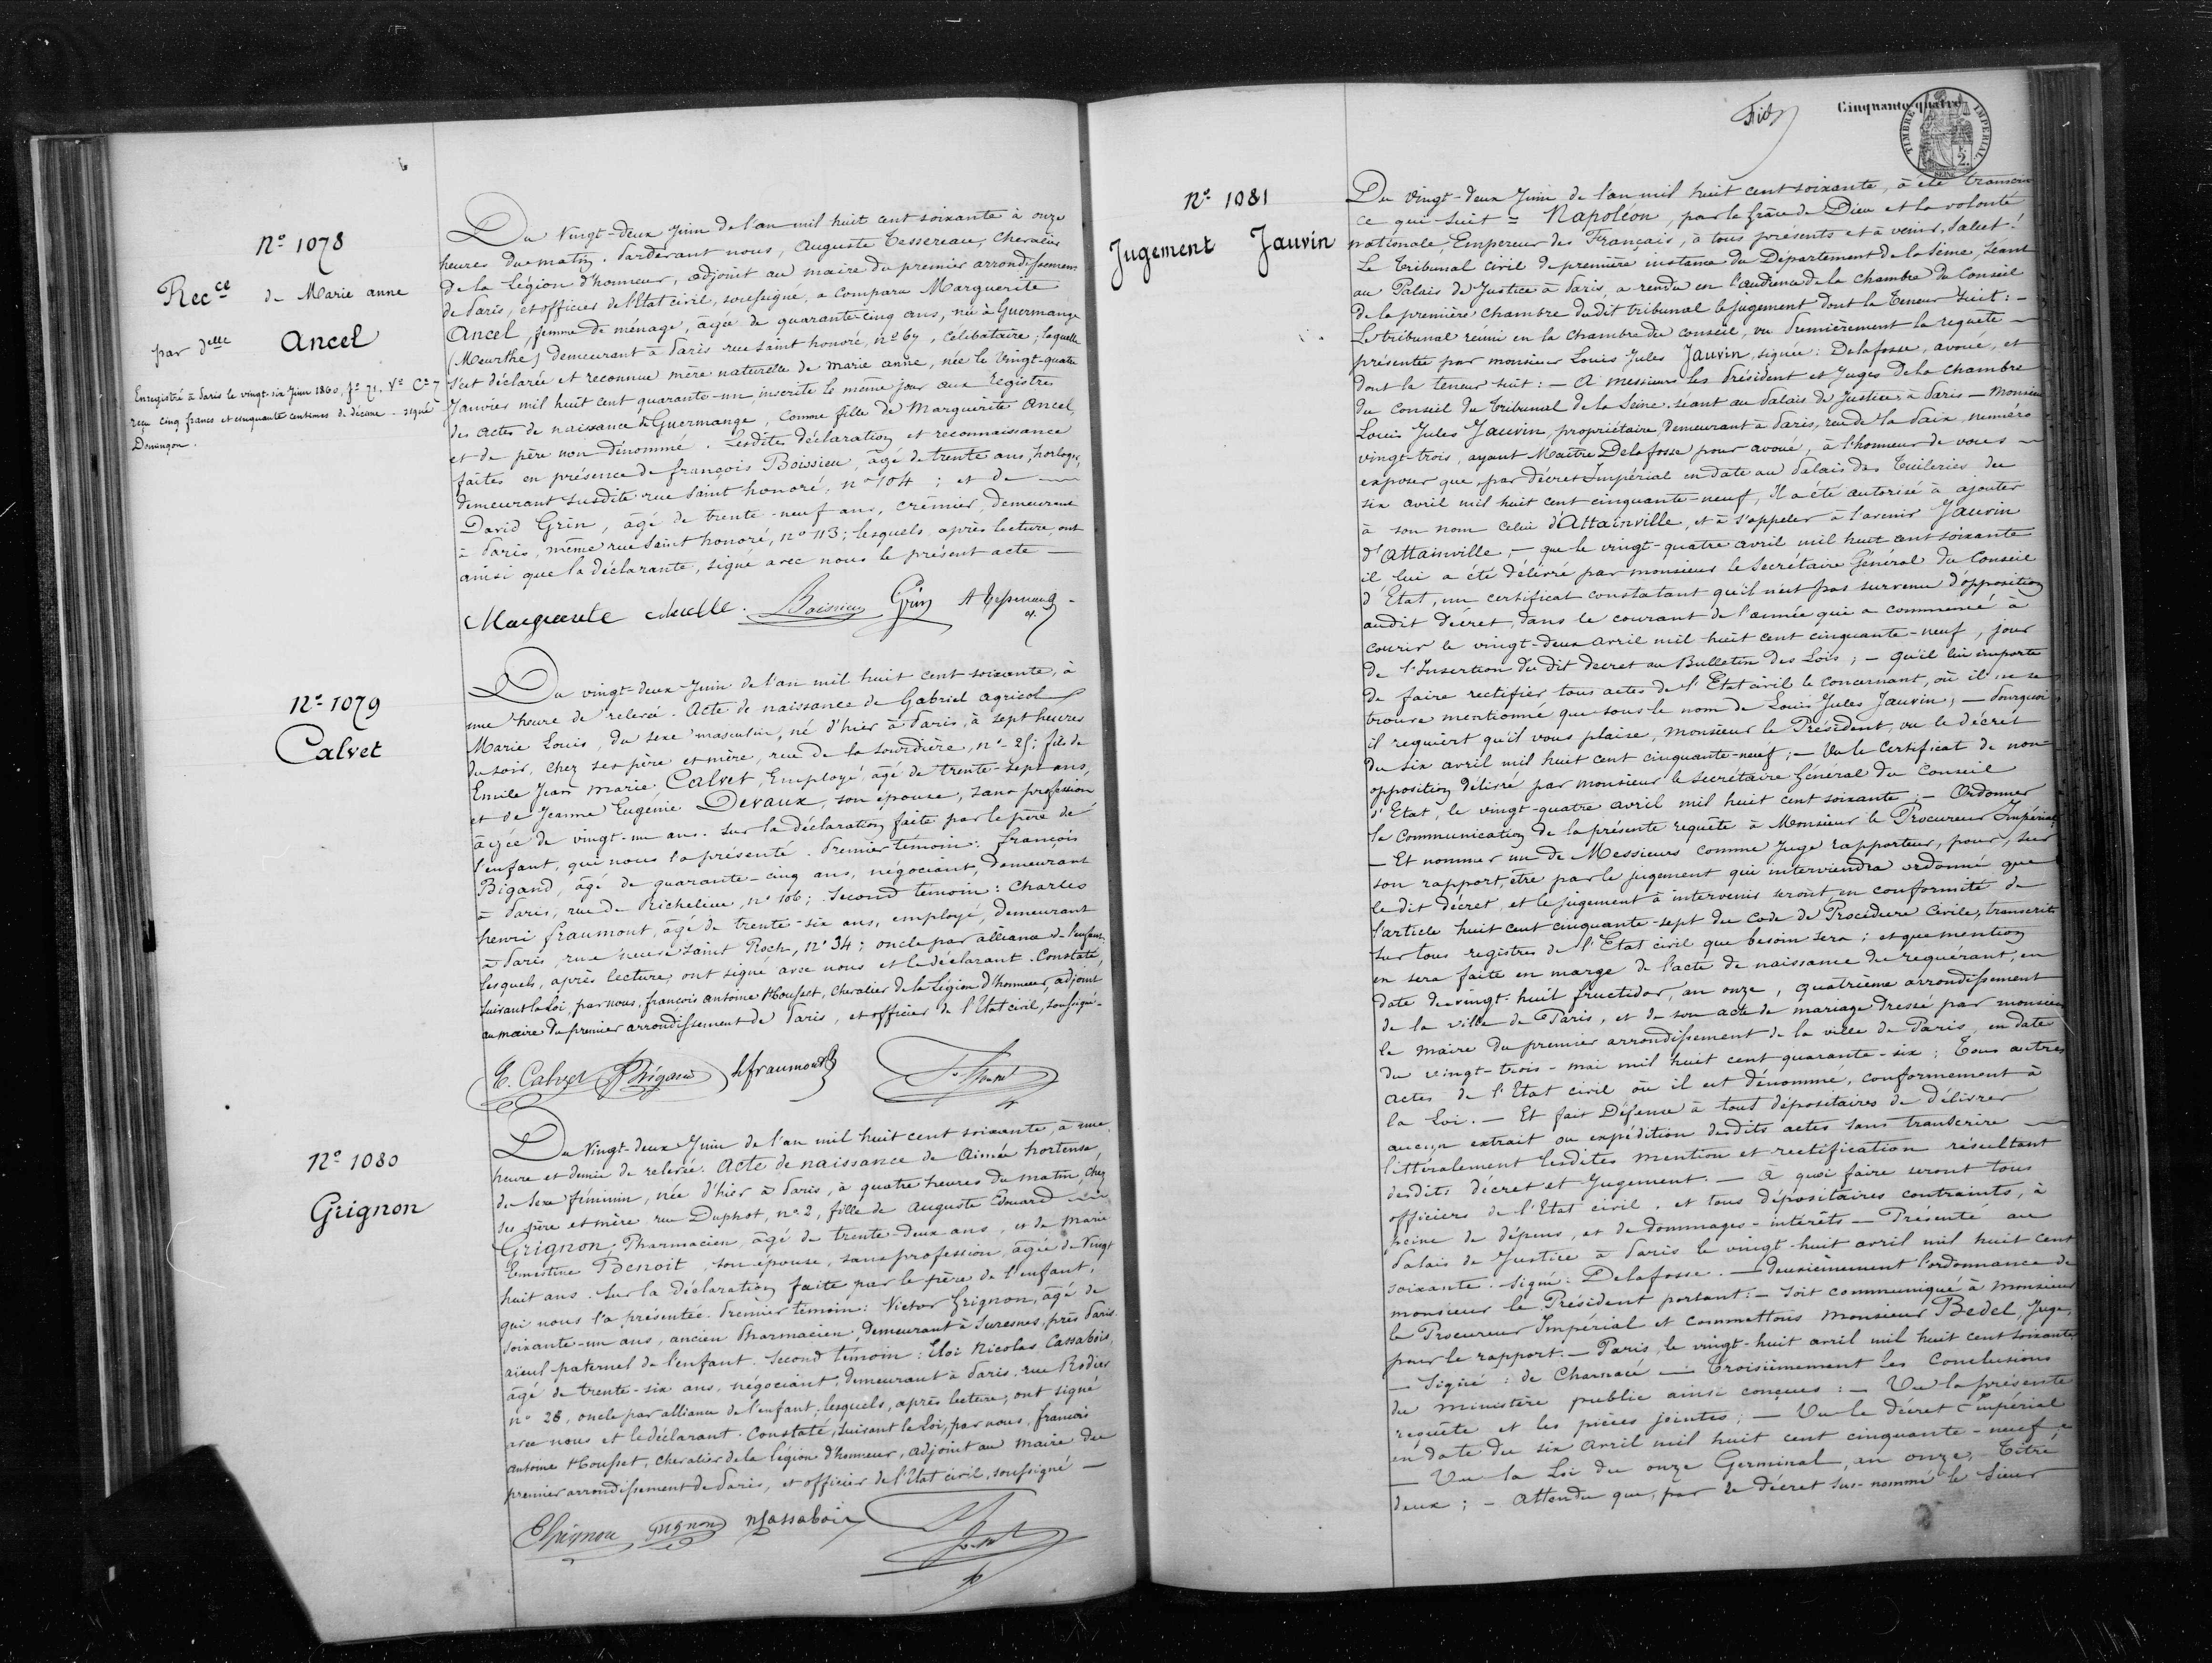 Nº 1078
Recce de Marie anne
par delle Ancel
Enregistré à Paris le vingt-six Juin 1860, fº 71, Vº Cº 7
reçu cinq francs et cinquante centimes de décime - signé
Du Vingt-deux Juin de l'an mil huit cent soixante à onze
heures du matin. Pardevant nous, Auguste Tessereau, Chevalier
de la Légion d'honneur, adjoint au maire du premier arrondissement
de Paris, et officier de l'Etat civil, soussigné, a comparu Marguerite
Ancel, femme de ménage, âgée de quarante cinq ans, née à Guermange
(Meurthe) demeurant à Paris rue Saint honoré, nº 67, célibataire; laquelle
s'est déclarée et reconnue mère naturelle de marie anne, née le Vingt-quatre
Janvier mil huit cent quarante-un, inscrite le même jour aux Registres
des actes de naissance de Guermange, comme fille de Marguerite Ancel,
et de père non dénommé. Lesdites déclaration et reconnaissance
faites en présence de françois Boissieu, âgé de trente ans, horloger,
demeurant susdite rue Saint honoré, nº 104; et de
David Grin, âgé de trente-neuf ans, crémier, demeurant
à Paris, même rue Saint honoré, nº 113; lesquels, après lecture, ont
ainsi que la déclarante, signé avec nous le présent acte —
Boissieu Grin A Tessereau
Nº 1079
Calvet
Du vingt-deux Juin de l'an mil huit cent soixante, à
une heure de relevée. Acte de naissance de Gabriel agricol
Marie Louis, du sexe masculin, né d'hier à Paris, à sept heures
du soir, chez ses père et mère, rue de la Sourdière, nº 25; fils de
Emile Jean Marie Calvet, Employé, âgé de trente-sept ans,
et de Jeanne Eugénie Devaux, son épouse, sans profession
âgée de vingt-un ans. Sur la déclaration faite par le père de
l'enfant, qui nous l'a présenté. Premier témoin: françois
Bigand, âgé de quarante-cinq ans, négociant, demeurant
à Paris, rue de Richelieu, nº 106; Second témoin: Charles
henri fraumont, âgé de trente-six ans, employé, demeurant
à Paris, rue neuve Saint Roch, nº 34; oncle par alliance de l'enfant;
lesquels, après lecture, ont signé avec nous et le déclarant. Constaté,
suivant la Loi, par nous, françois antoine Housset, Chevalier de la Légion d'honneur, adjoint
au maire du premier arrondissement de Paris, et officier de l'Etat civil, soussigné -
E. Calvet Bigand hfraumont
Nº 1080
Grignon
Du Vingt-deux Juin de l'an mil huit cent soixante, à une
heure et demie de relevée. Acte de naissance de Aimée hortense
du sexe féminin, née d'hier à Paris, à quatre heures du matin, chez
ses père et mère rue Duphot, nº 2, fille de Auguste Edouard
Grignon, Pharmacien, âgé de trente-deux ans, et de Marie
Ernestine Benoit, son épouse, sans profession, âgée de Vingt
huit ans. Sur la déclaration faite par le père de l'enfant,
qui nous l'a présentée. Premier témoin: Victor Grignon, âgé de
soixante-un ans, ancien Pharmacien, demeurant à Suresnes, près Paris
aïeul paternel de l'enfant. Second témoin: Eloi Nicolas Cassabois,
âgé de trente-six ans, négociant, demeurant à Paris, rue Rodier
nº 28, oncle par alliance de l'enfant, lesquels, après lecture, ont signé
avec nous et le déclarant. Constaté, suivant la Loi, par nous, francois
antoine Housset, Chevalier de la Légion d'honneur, adjoint au maire du
premier arrondissement de Paris, et officier de l'Etat civil, soussigné —
Grignon nCassabois
Cinquante-quatre
TIMBRE IMPERIAL
2.
SEINE
Nº 1081
Jugement Jauvin
Du vingt-deux Juin de l'an mil huit cent soixante, à été transcrit
ce qui suit = Napoléon, par la grâce de Dieu et la volonté
nationale Empereur des Français, à tous présents et à venir, Salut!
Le Tribunal civil de première instance du Département de la Seine, séant
au Palais de Justice à Paris, a rendu en l'audience de la chambre du Conseil
de la première chambre dudit tribunal le jugement dont la teneur suit: -
Le tribunal réuni en la chambre du conseil, vu Premièrement la requête —
présentée par monsieur Louis Jules Jauvin, signée: Delafosse, avoué, et
dont la teneur suit: - A messieurs les Président et Juges de la chambre
du Conseil du tribunal de la Seine, séant au Palais de Justice à Paris — Monsieur
Louis Jules Jauvin, propriétaire, demeurant à Paris, rue de la Paix, numéro
vingt-trois, ayant Maître Delafosse pour avoué, à l'honneur de vous
exposer que, par décret Impérial en date au Palais des Tuileries du
six avril mil huit cent cinquante-neuf, Il a été autorisé à ajouter
à son nom celui d'Attainville, et à s'appeler à l'avenir Jauvin
d'Attainville; - que le vingt-quatre avril mil huit cent soixante
il lui a été délivré par monsieur le Secrétaire Général du Conseil
d'Etat, un certificat constatant qu'il n'est pas survenu d'opposition
audit décret, dans le courant de l'année qui a commencé à
courir le vingt-deux avril mil huit cent cinquante-neuf, jour
de l'Insertion du dit decret au Bulletin des Lois; - Qu'il lui importe
de faire rectifier tous actes de l'Etat civil le concernant, où il ne se
trouve mentionné que sous le nom de Louis Jules Jauvin; - Pourquoi
il requiert qu'il vous plaise, Monsieur le Président, vu le décret
du six avril mil huit cent cinquante-neuf; - Vu le Certificat de non-
opposition délivré par monsieur le Secrétaire Général du Conseil
d'Etat, le vingt-quatre avril mil huit cent soixante; - Ordonner
la Communication de la présente requête à Monsieur le Procureur Impérial
— Et nommer un de Messieurs comme Juge rapporteur, pour, sur
son rapport, être par le jugement qui interviendra ordonné que
le dit décret, et le jugement à intervenir seront, en conformité de
l'article huit cent cinquante-sept du Code de Procédure Civile, transcrits
sur tous registres de l'Etat civil que besoin sera; et que mention
en sera faite en marge de l'acte de naissance du requérant, en
date du vingt-huit fructidor, an onze, quatrième arrondissement
de la ville de Paris, et de son acte de mariage dressé par monsieur
le maire du premier arrondissement de la ville de Paris, en date
du vingt-trois-mai mil huit cent quarante-six; Tous autres
actes de l'Etat civil où il est dénommé, conformément à
la Loi. — Et fait Défense à tout dépositaires de délivrer
aucun extrait ou expédition desdits actes sans transcrire
littéralement lesdites mention et rectification résultant
desdits décret et Jugement. - à quoi faire seront tous
officiers de l'Etat civil, et tous dépositaires contraints, à
peine de dépens, et de dommages-intérêts — Présenté au
Palais de Justice à Paris le vingt-huit avril mil huit cent
soixante. Signé: Delafosse. - Deuxièmement l'ordonnance de
monsieur le Président portant: - Soit communiqué à monsieur
le Procureur Impérial et commettons monsieur Bedel, Juge,
pour le rapport. - Paris, le vingt-huit avril mil huit cent soixante
— Signé: de Charnacé — Troisièmement les Conclusions
du ministère public ainsi conçues: - Vu la présente
requête et les pièces jointes; — Vu le décret impérial
en date du six avril mil huit cent cinquante-neuf
— Vu la Loi du onze Germinal, an onze, Titre
deux; - Attendu que, par le décret sus-nommé le Sieur